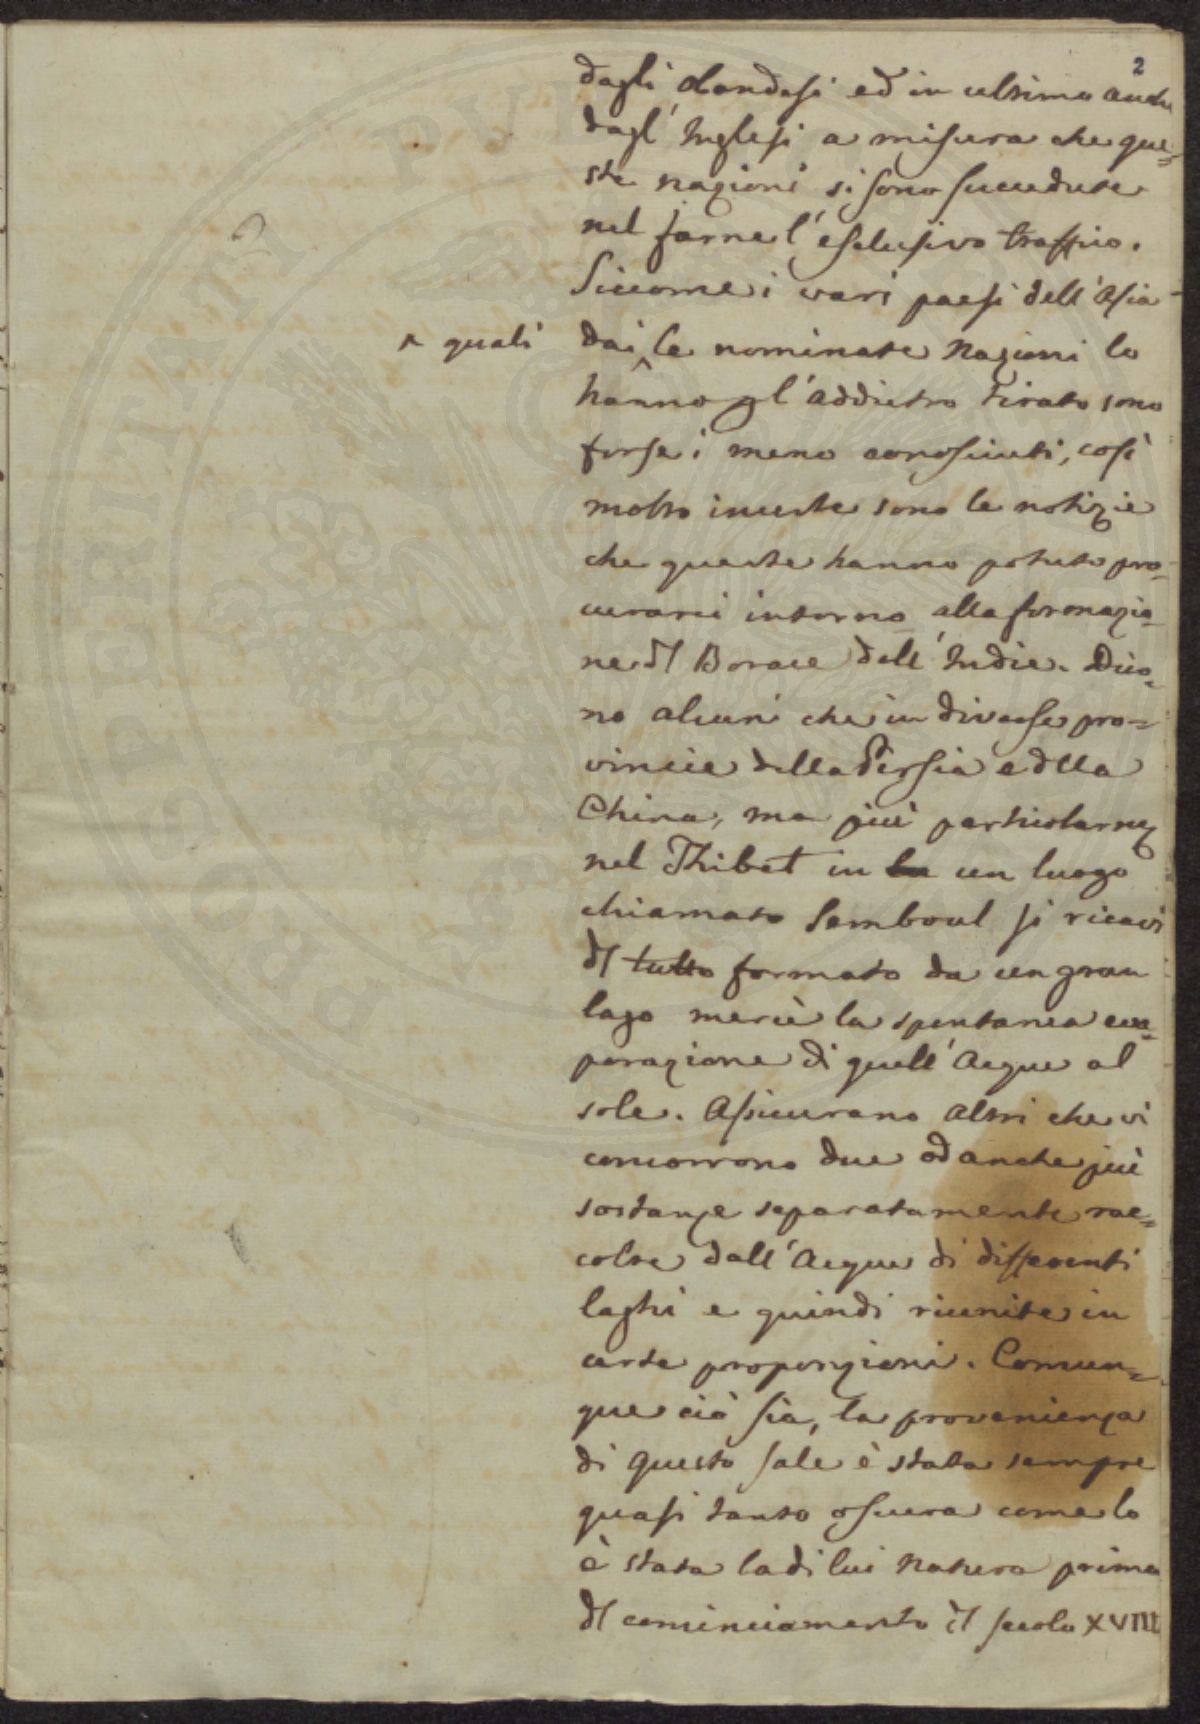 2
dagli Olandesi ed in ultimo anche
dagl'Inglesi a misura che que=
ste nazioni si sono succedute
nel farne l'esclusivo traffico.
Siccome i vari paesi dell'Asia
^ quali
dai le nominate Nazioni lo
hanno pl'addietro tirato sono
forse i meno conosciuti, così
molto incerte sono le notizie
che queste hanno potuto pro=
curarci intorno alla formazio=
ne dl Borace dell'Indie. Dico=
no alcuni che in diverse pro=
vincie della Persia e dlla
China, ma più particolarmẽ
nel Thibet in un luogo
chiamato Semboul si ricavi
dl tutto formato da un gran
lago mercè la spontanea eva=
porazione di quell'Acque al
sole. Assicurano altri che vi
concorrono due od anche più
sostanze separatamente rac=
colte dall'Acque di differenti
laghi e quindi riunite in
certe proporzioni. Comun=
que ciò sia, la provenienza
di questo sale è stata sempre
quasi tanto oscura come lo
è stata la di lui Natura prima
dl cominciamento dl secolo XVIII
PROSPERITATI PVBL